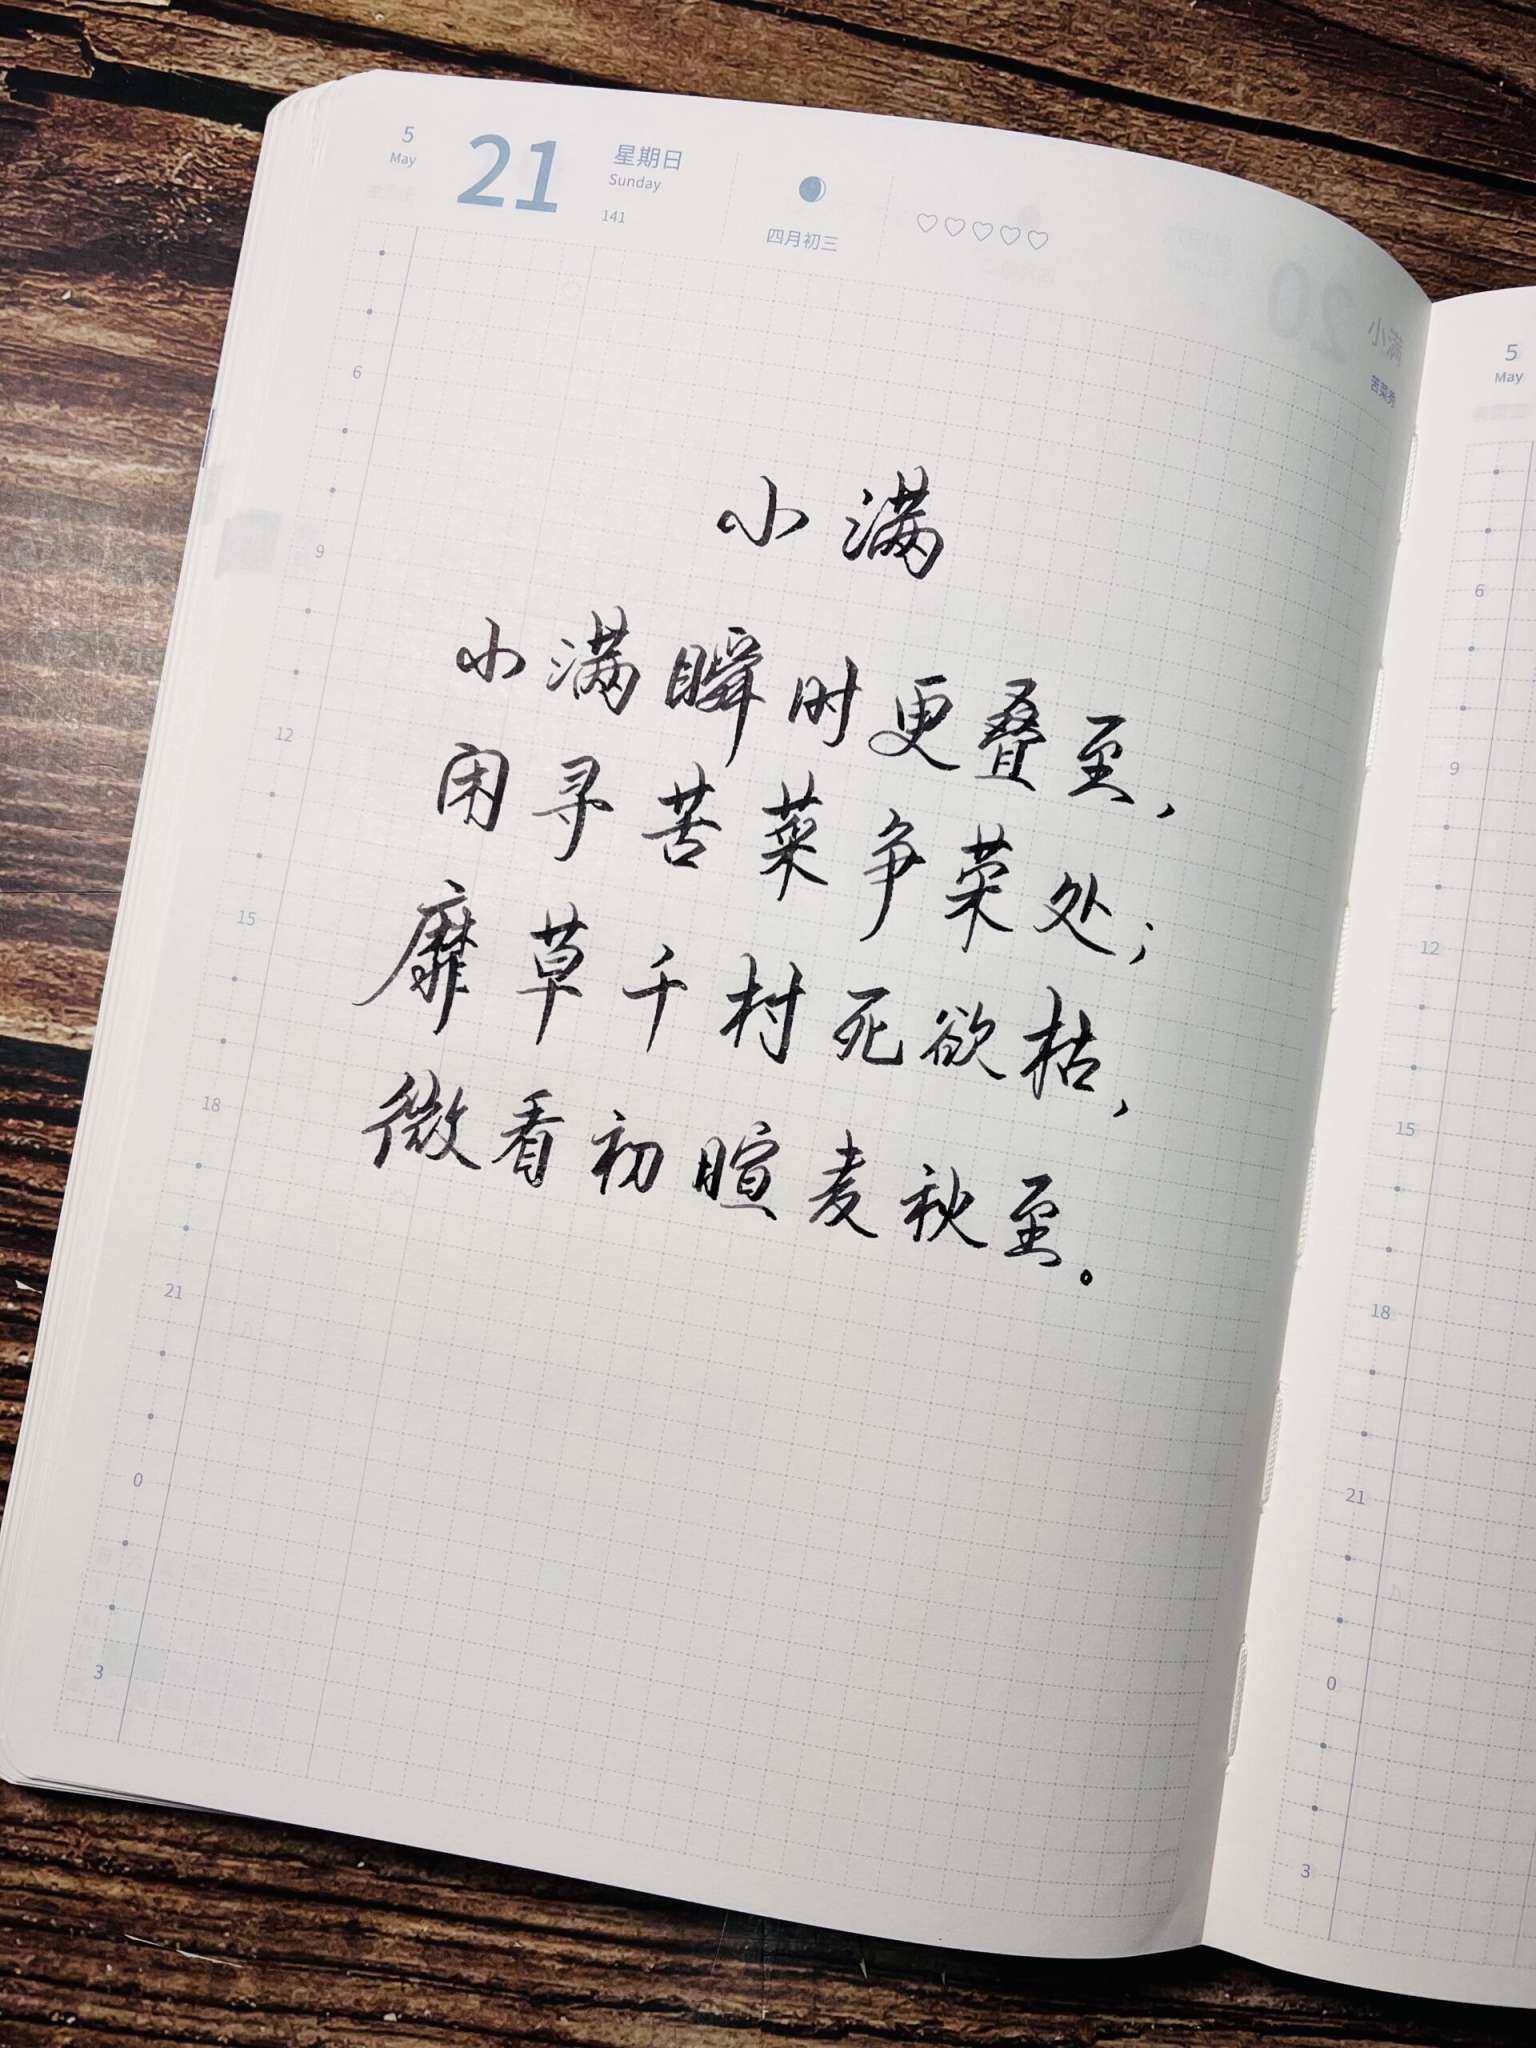 5
May
21
星期日
Sunday
141
四月初三
小满
小满瞬时更叠至，
闲寻苦菜争荣处；
靡草千村死欲枯，
微看初暄麦秋至。
6
9
12
15
18
21
0
3
小满
苦菜秀
20
5
May
6
9
12
15
18
21
0
3